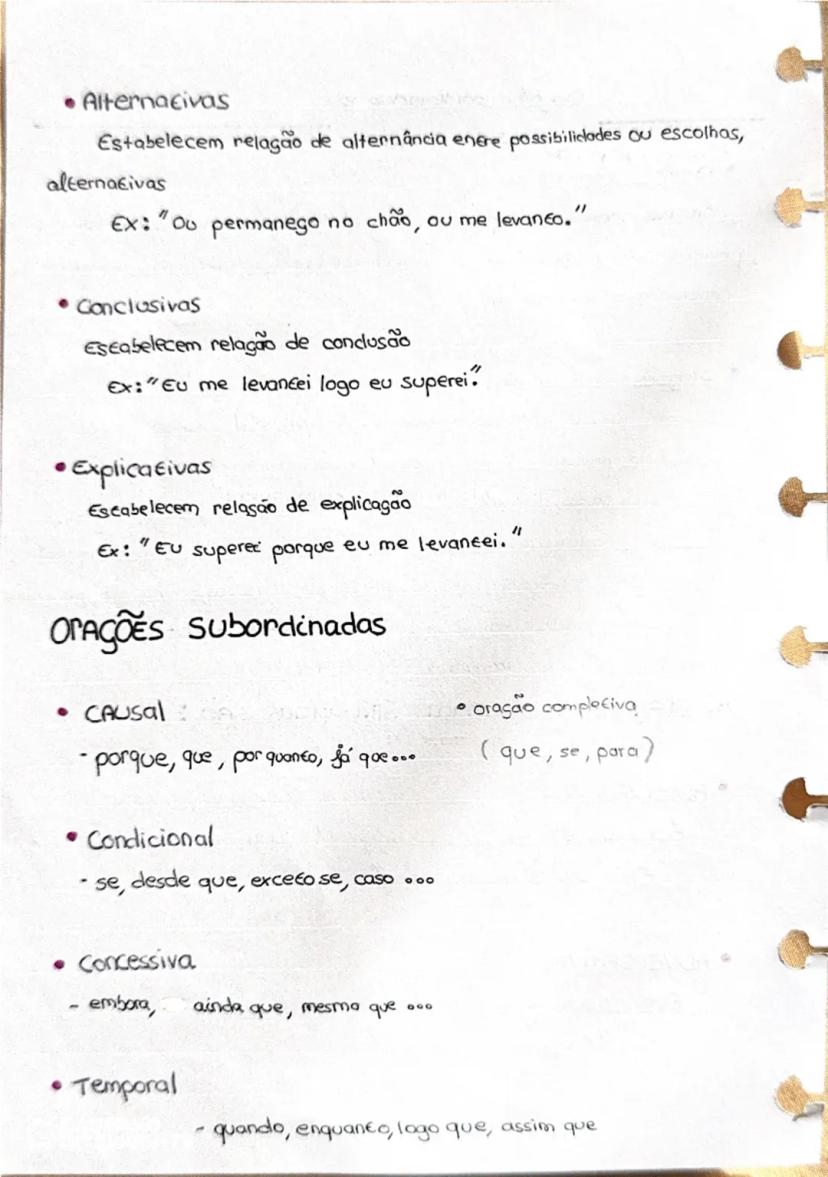 • Alternativas
Estabelecem relação de alternância entre possibilidades ou escolhas,
alternativas
Ex: "Ou permaneço no chão, ou me levanto."
• Conclusivas
Estabelecem relação de conclusão
Ex: "Eu me levantei logo eu superei".
• Explicativas
Estabelecem relação de explicação
Ex: "Eu superei porque eu me levantei."
Orações Subordinadas
• Causal
- porque, que, porquanto, já que...
• oração completiva
(que, se, para)
• Condicional
- se, desde que, exceto se, caso ...
• Concessiva
- embora, ainda que, mesmo que ...
• Temporal
- quando, enquanto, logo que, assim que